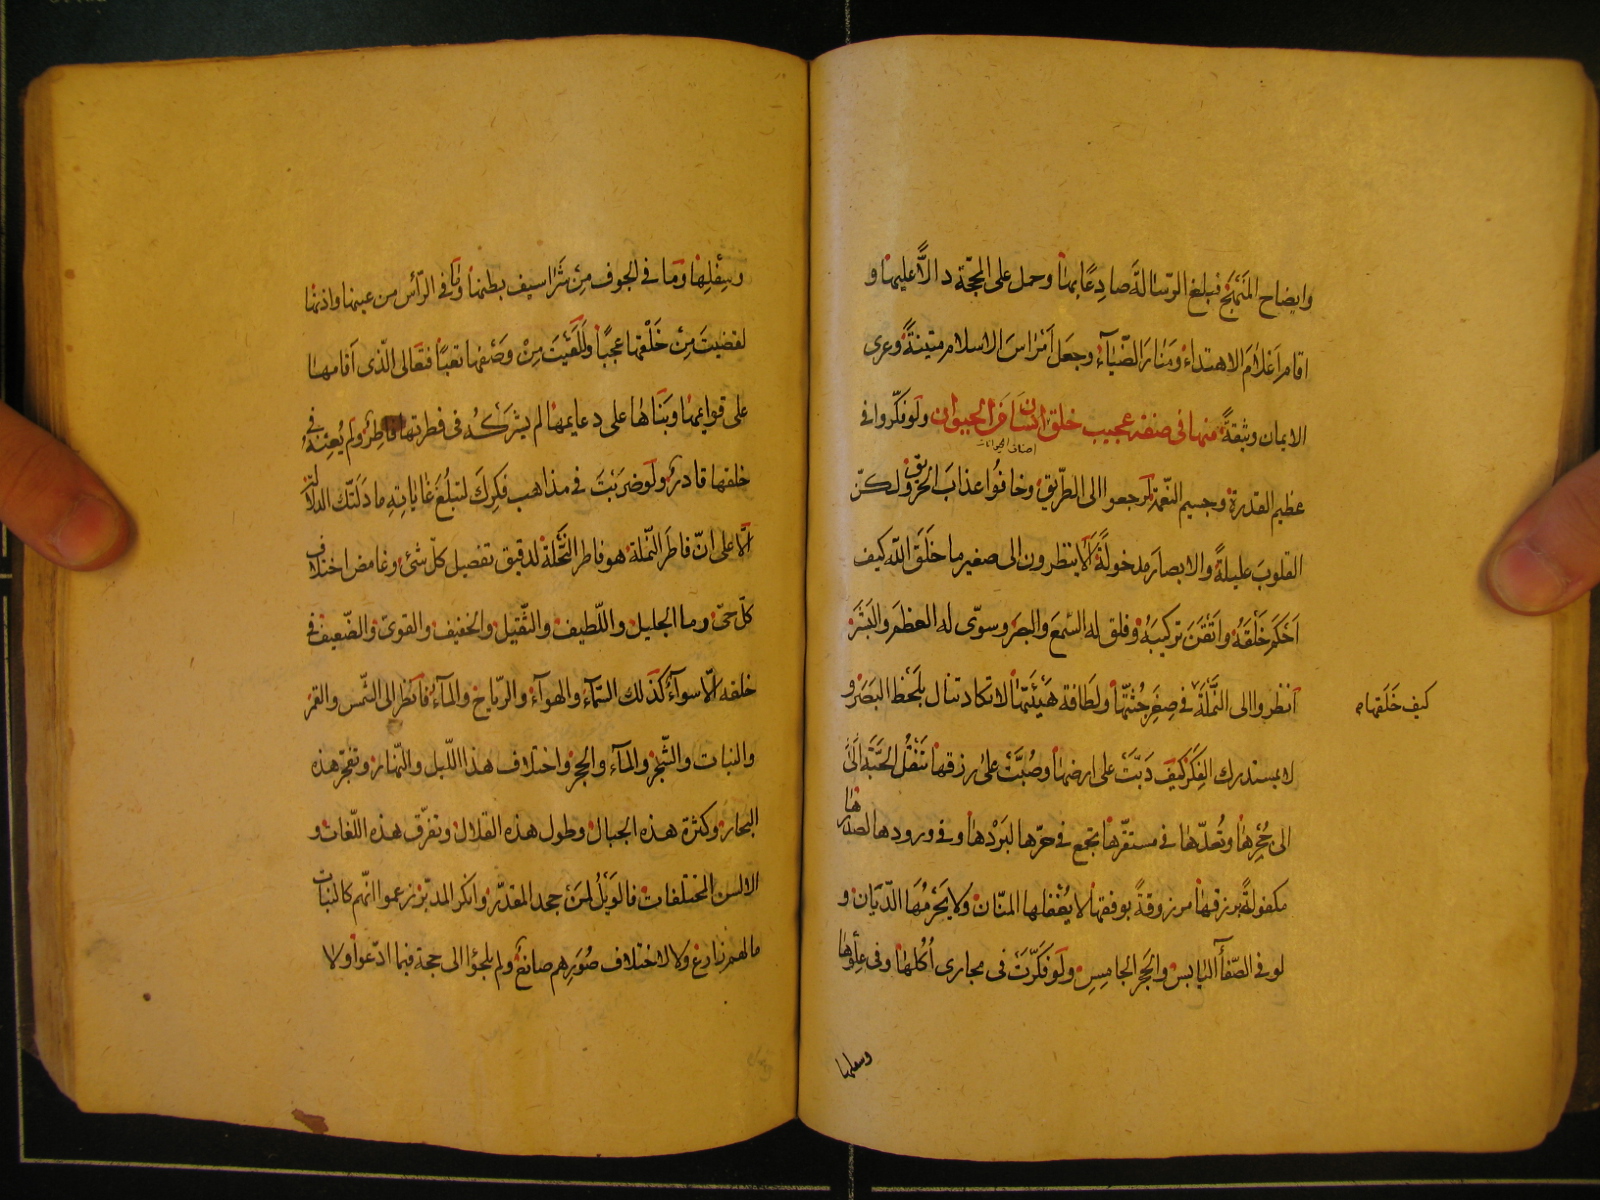 وايضاح المَنهَج فبلغ الرّسالةَ صادِعًا بها وحمل على المحجّة دالاًّ عليها و
اقام اَعْلامَ الاهتداء ومَنارَ الضّياء وجعل اَمْراسَ الاسلام متينةً وعرى
الايمان وثيقةً منها فى صفة عجيب خلق انسان من الحيوان ولو فكّروا فى
اصناف الحيوانات
عظيم القدرة وجسيم النّعمة لرجعوا الى الطّريق وخافُوا عذابَ الحريق ولكنّ
القلوبَ عليلةً والابصارَ مدخولةً اَلا ينظرون الى صغير ما خلَقَ الله كيف
اَحْكَمَ خَلْقَهُ واَتقَنَ تركيبَهُ وفلق له السّمعَ والبصرَ وسوّى له العظمَ والبَشَرَ
اُنظروا الى النَّملَة فى صِغَرِ جُثّتِها ولَطافة هَيْئَتِها لا تكاد تنال بلَحْظ البَصَر و
كيف خَلَقَها م
لا بمستدرك الفِكَر كيفَ دَبَّت على ارضها وصُبَّت على رزقها تَنْقُلُ الحَبَّة
الى جُحْرِها وتُعدّها فى مستقرّها تجمع فى حرّها لبَرْدها وفى ورودها لصدرها
مكفولةٌ برزقها مرزوقةً بوفقها لا يُغْفِلها المنّان ولا يَحْرِمُهَا الدّيّان و
لو فى الصّفا اليَابس والحَجر الجامِسِ ولَو فكّرْتَ فى مجارى اُكُلها وفى علِوها
وسفلها
وسِفْلِها وما فى الجوف مِن شَراسيف بطنها وما فى الرّأس من عينها واذنها
لقضيتَ مِن خَلْقها عجَبًا ولَلَقيْتَ مِنْ وَصْفها تعبًا فتعالى الّذى اَقامها
على قوائمها وبَناها على دعائمها لم يشرَكْهُ فى فطرتها فاطِرٌ ولم يُعِنْهُ فى
خلقها قادرٌ ولو ضَرَبْتَ فى مذاهب فِكرِكَ لتبلُغَ غاياتِهِ ما دَلَّتك الدلالة
اِلّا على انّ فاطَر النّملة هو فاطر النّخْلة لدقيق تفصيل كلّ شئ وغامض اختلاف
كلّ حىّ وما الجليل واللّطيف والثّقيل والخفيف والقوىّ والضّعيف فى
خلقه اِلّا سواءً كذلك السّماء والهواء والرّياح والماء فانظر الى الشّمس والقمر
والنبات والشّجر والماء والحجر واختلاف هذا اللّيل والنّهار وتفجّر هذه
البحار وكثرة هذه الجبال وطول هذه القلال وتفرّق هذه اللّغات و
الالسن المختلفات فالوَيْلُ لمن جحد المقدّر وانكر المدبّر زعموا انّهم كالنّبات
ما لهم زارع ولا لاختلاف صُوَرِهم صانعٌ ولم يلجؤا الى حجة فيما ادّعوا ولا